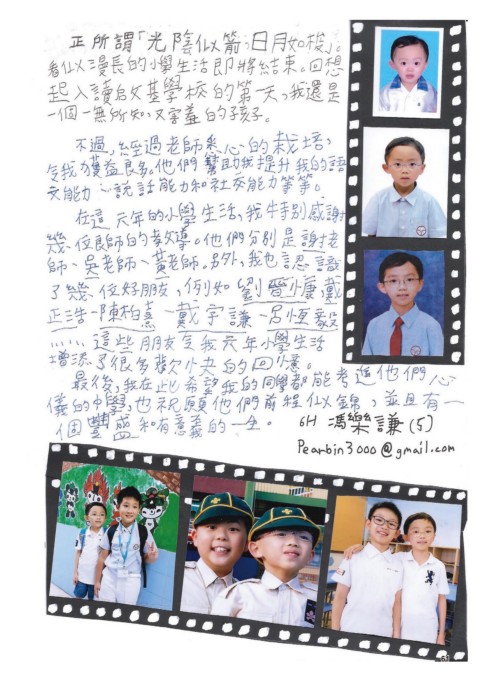 正所謂「光陰似箭，日月如梭」。
看似漫長的小學生活即將結束。回想
起入讀啟基學校的第一天，我還是
一個一無所知，又害羞的孩子。
不過，經過老師悉心的栽培，
令我獲益良多。他們幫助我提升我的語
文能力、說話能力和社交能力等等。
在這六年的小學生活，我特別感謝
幾位良師的教導。他們分別是謝老
師、吳老師、黃老師。另外，我也認識
了幾位好朋友，例如劉晉康、戴
正浩、陳柏熹、戴宇謙、呂恆毅
……這些朋友令我六年小學生活
增添了很多歡小央的回憶。
最後，我在此希望我的同學都能考進他們心
儀的中學，也祝願他們前程似錦，並且有一
個豐盛和有意義的一生。
6H 馮樂謙 (5)
Pearbin3000@gmail.com
61